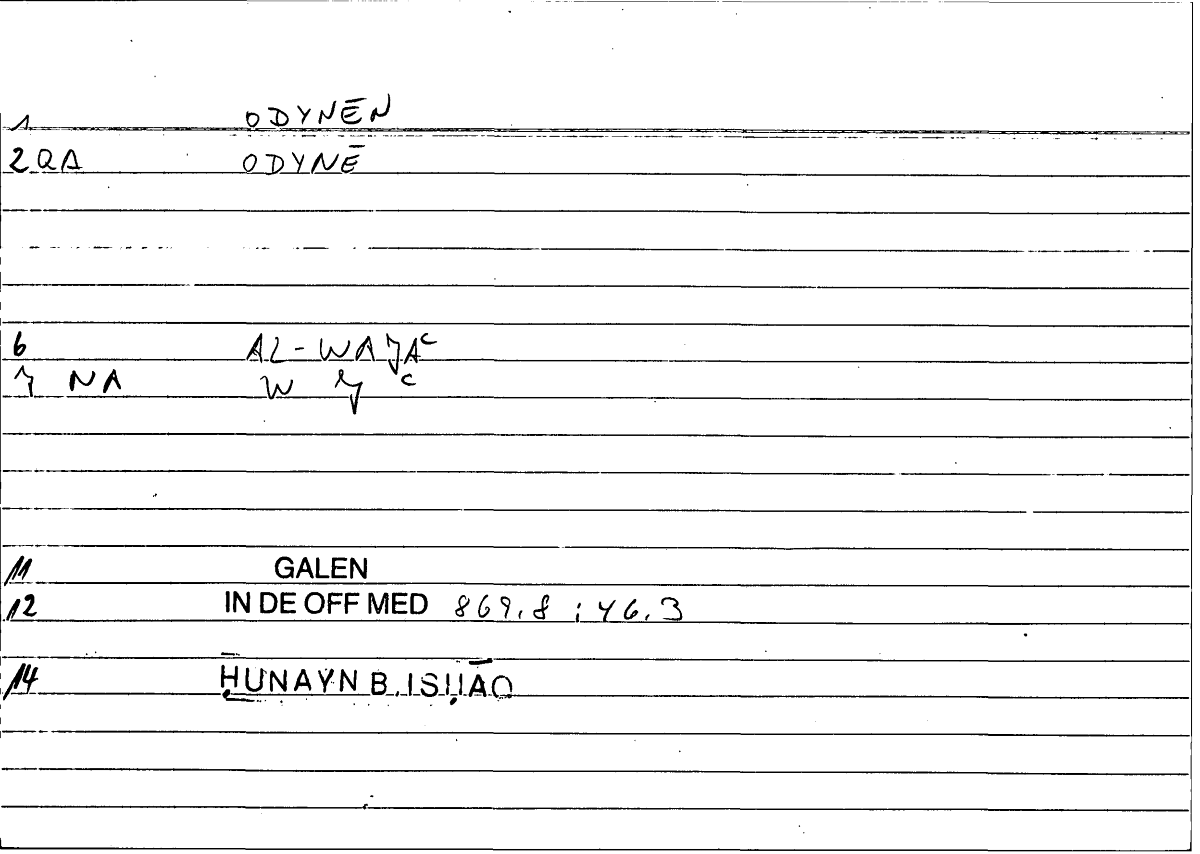 1 ODYNĒN
2 QA ODYNĒ
6 AL-WAJAᶜ
7 NA W J ᶜ
11 GALEN
12 IN DE OFF MED 869.8 ; 46.3
14 ḤUNAYN B. ISḤĀQ